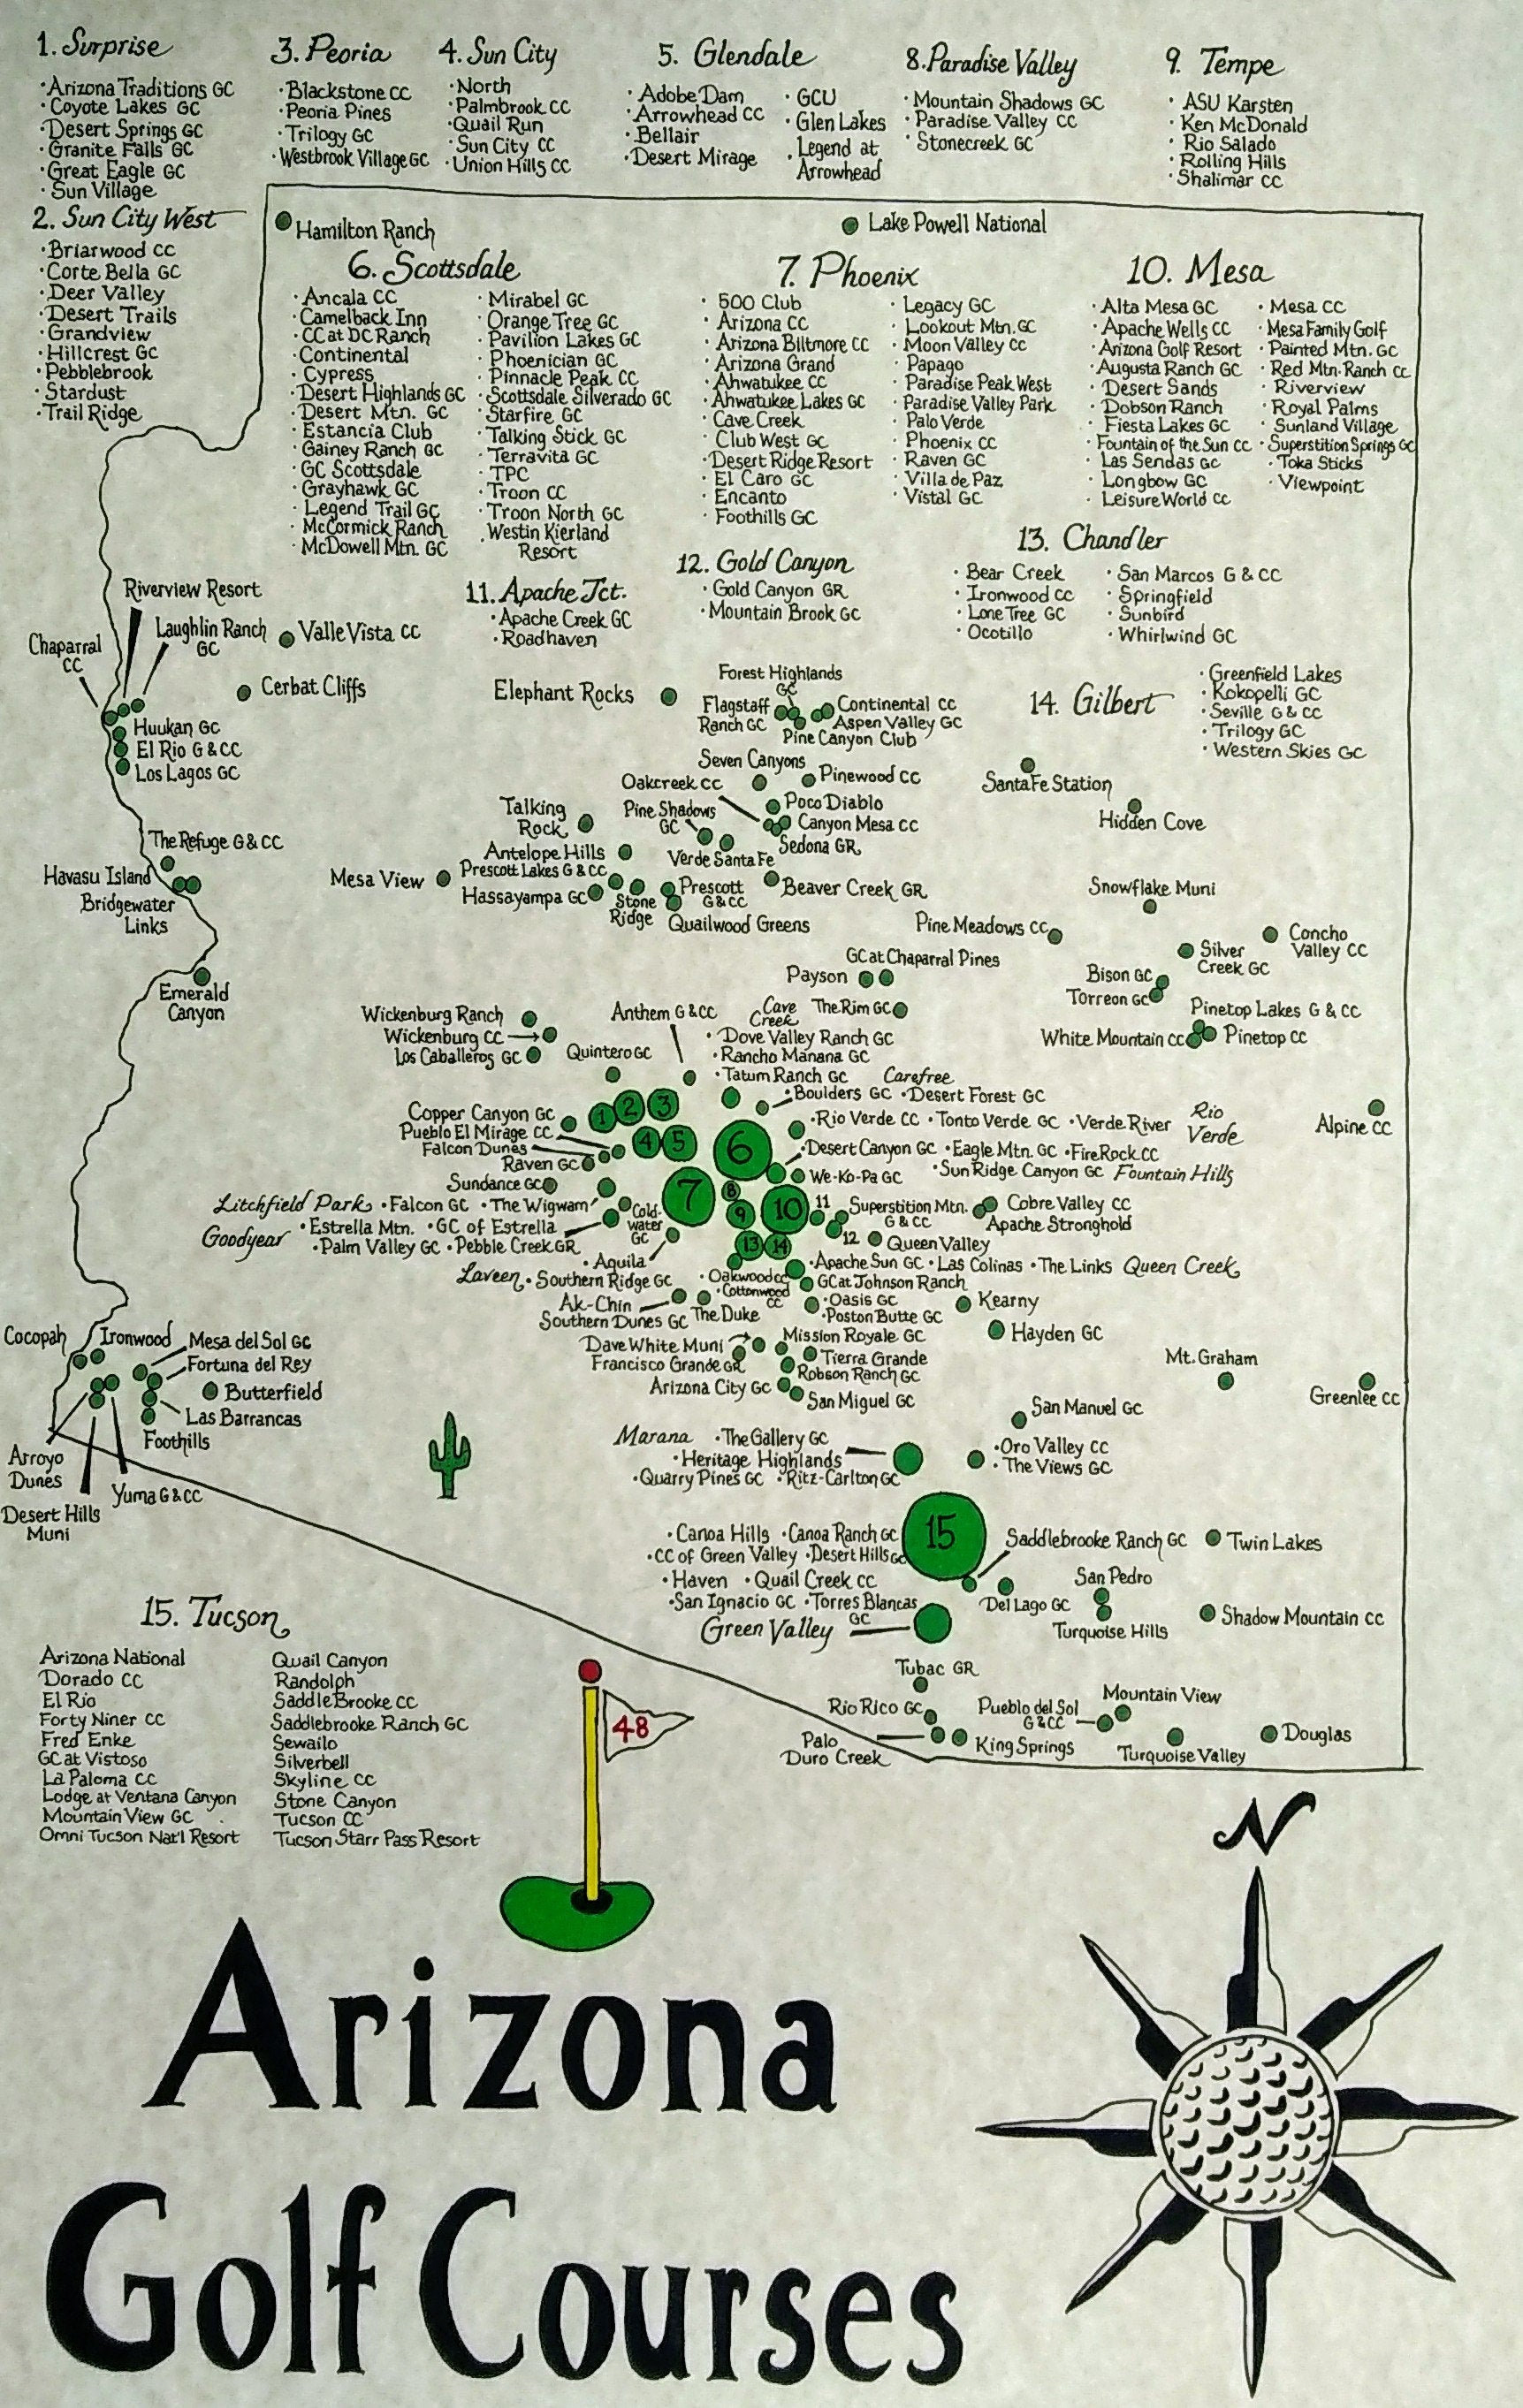 1. Surprise
·Arizona Traditions GC
·Coyote Lakes GC
·Desert Springs GC
·Granite Falls GC
·Great Eagle GC
·Sun Village
2. Sun City West
·Briarwood CC
·Corte Bella GC
·Deer Valley
·Desert Trails
·Grandview
·Hillcrest GC
·Pebblebrook
·Stardust
·Trail Ridge
3. Peoria
·Blackstone CC
·Peoria Pines
·Trilogy GC
·Westbrook Village GC
4. Sun City
·North
·Palmbrook CC
·Quail Run
·Sun City CC
·Union Hills CC
5. Glendale
·Adobe Dam
·Arrowhead CC
·Bellair
·Desert Mirage
·GCU
·Glen Lakes
·Legend at
Arrowhead
8. Paradise Valley
·Mountain Shadows GC
·Paradise Valley CC
·Stonecreek GC
9. Tempe
·ASU Karsten
·Ken McDonald
·Rio Salado
·Rolling Hills
·Shalimar CC
Hamilton Ranch
Lake Powell National
6. Scottsdale
·Ancala CC
·Camelback Inn
·CC at DC Ranch
·Continental
·Cypress
·Desert Highlands GC
·Desert Mtn. GC
·Estancia Club
·Gainey Ranch GC
·GC Scottsdale
·Grayhawk GC
·Legend Trail GC
·McCormick Ranch
·McDowell Mtn. GC
·Mirabel GC
·Orange Tree GC
·Pavilion Lakes GC
·Phoenician GC
·Pinnacle Peak CC
·Scottsdale Silverado GC
·Starfire GC
·Talking Stick GC
·Terravita GC
·TPC
·Troon CC
·Troon North GC
·Westin Kierland
Resort
7. Phoenix
·500 Club
·Arizona CC
·Arizona Biltmore CC
·Arizona Grand
·Ahwatukee CC
·Ahwatukee Lakes GC
·Cave Creek
·Club West GC
·Desert Ridge Resort
·El Caro GC
·Encanto
·Foothills GC
·Legacy GC
·Lookout Mtn. GC
·Moon Valley CC
·Papago
·Paradise Peak West
·Paradise Valley Park
·Palo Verde
·Phoenix CC
·Raven GC
·Villa de Paz
·Vistal GC
10. Mesa
·Alta Mesa GC
·Apache Wells CC
·Arizona Golf Resort
·Augusta Ranch GC
·Desert Sands
·Dobson Ranch
·Fiesta Lakes GC
·Fountain of the Sun CC
·Las Sendas GC
·Longbow GC
·Leisure World CC
·Mesa CC
·Mesa Family Golf
·Painted Mtn. GC
·Red Mtn. Ranch CC
·Riverview
·Royal Palms
·Sunland Village
·Superstition Springs GC
·Toka Sticks
·Viewpoint
11. Apache Jct.
·Apache Creek GC
·Roadhaven
12. Gold Canyon
·Gold Canyon GR
·Mountain Brook GC
13. Chandler
·Bear Creek
·Ironwood CC
·Lone Tree GC
·Ocotillo
·San Marcos G & CC
·Springfield
·Sunbird
·Whirlwind GC
14. Gilbert
·Greenfield Lakes
·Kokopelli GC
·Seville G & CC
·Trilogy GC
·Western Skies GC
Riverview Resort
Laughlin Ranch
GC
Chaparral
CC
Valle Vista CC
Cerbat Cliffs
Huukan GC
El Rio G & CC
Los Lagos GC
Elephant Rocks
Forest Highlands
GC
Flagstaff
Ranch GC
Continental CC
Aspen Valley GC
Pine Canyon Club
Seven Canyons
Pinewood CC
Oakcreek CC
Poco Diablo
Canyon Mesa CC
Sedona GR
Pine Shadows
GC
Verde Santa Fe
Santa Fe Station
Hidden Cove
Talking
Rock
Antelope Hills
Prescott Lakes G & CC
Hassayampa GC
Stone
Ridge
Prescott
G & CC
Quailwood Greens
Beaver Creek GR
Mesa View
The Refuge G & CC
Havasu Island
Bridgewater
Links
Emerald
Canyon
Snowflake Muni
Pine Meadows CC
Concho
Valley CC
Silver
Creek GC
Bison GC
Torreon GC
Pinetop Lakes G & CC
White Mountain CC
Pinetop CC
GC at Chaparral Pines
Payson
The Rim GC
Wickenburg Ranch
Wickenburg CC
Los Caballeros GC
Quintero GC
Anthem G & CC
Cave
Creek
·Dove Valley Ranch GC
·Rancho Manana GC
·Tatum Ranch GC
Carefree
·Boulders GC ·Desert Forest GC
·Rio Verde CC ·Tonto Verde GC ·Verde River
Rio
Verde
·Desert Canyon GC ·Eagle Mtn. GC ·FireRock CC
·Sun Ridge Canyon GC Fountain Hills
We-Ko-Pa GC
Alpine CC
Copper Canyon GC
Pueblo El Mirage CC
Falcon Dunes
Raven GC
Sundance GC
Litchfield Park ·Falcon GC ·The Wigwam
Goodyear
·Estrella Mtn. ·GC of Estrella
·Palm Valley GC ·Pebble Creek GR
Cold-
water
GC
1
2
3
4
5
6
7
8
9
10
11
12
13
14
Superstition Mtn.
G & CC
Cobre Valley CC
Apache Stronghold
Queen Valley
·Aquila
Laveen ·Southern Ridge GC
·Apache Sun GC ·Las Colinas ·The Links Queen Creek
·Oakwood CC
·Cottonwood
CC
GC at Johnson Ranch
·Oasis GC
·Poston Butte GC
Ak-Chin
Southern Dunes GC
The Duke
Kearny
Hayden GC
Dave White Muni
Francisco Grande GR
Mission Royale GC
Tierra Grande
Robson Ranch GC
Arizona City GC
San Miguel GC
Mt. Graham
Greenlee CC
Cocopah
Ironwood
Mesa del Sol GC
Fortuna del Rey
Butterfield
Las Barrancas
Foothills
Arroyo
Dunes
Yuma G & CC
Desert Hills
Muni
San Manuel GC
Marana ·The Gallery GC
·Heritage Highlands
·Quarry Pines GC ·Ritz-Carlton GC
·Oro Valley CC
·The Views GC
15
·Canoa Hills ·Canoa Ranch GC
·CC of Green Valley ·Desert Hills GC
·Haven ·Quail Creek CC
·San Ignacio GC ·Torres Blancas
GC
Green Valley
Saddlebrooke Ranch GC
Twin Lakes
Del Lago GC
San Pedro
Turquoise Hills
Shadow Mountain CC
Tubac GR
Rio Rico GC
Palo
Duro Creek
King Springs
Pueblo del Sol
G & CC
Mountain View
Turquoise Valley
Douglas
15. Tucson
Arizona National
Dorado CC
El Rio
Forty Niner CC
Fred Enke
GC at Vistoso
La Paloma CC
Lodge at Ventana Canyon
Mountain View GC
Omni Tucson Nat'l Resort
Quail Canyon
Randolph
SaddleBrooke CC
Saddlebrooke Ranch GC
Sewailo
Silverbell
Skyline CC
Stone Canyon
Tucson CC
Tucson Starr Pass Resort
48
N
Arizona
Golf Courses